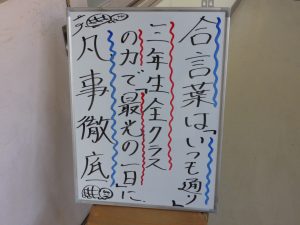 合言葉は「いつも通り」
三年生全クラス
の力で「最光の一日」に
凡事徹底